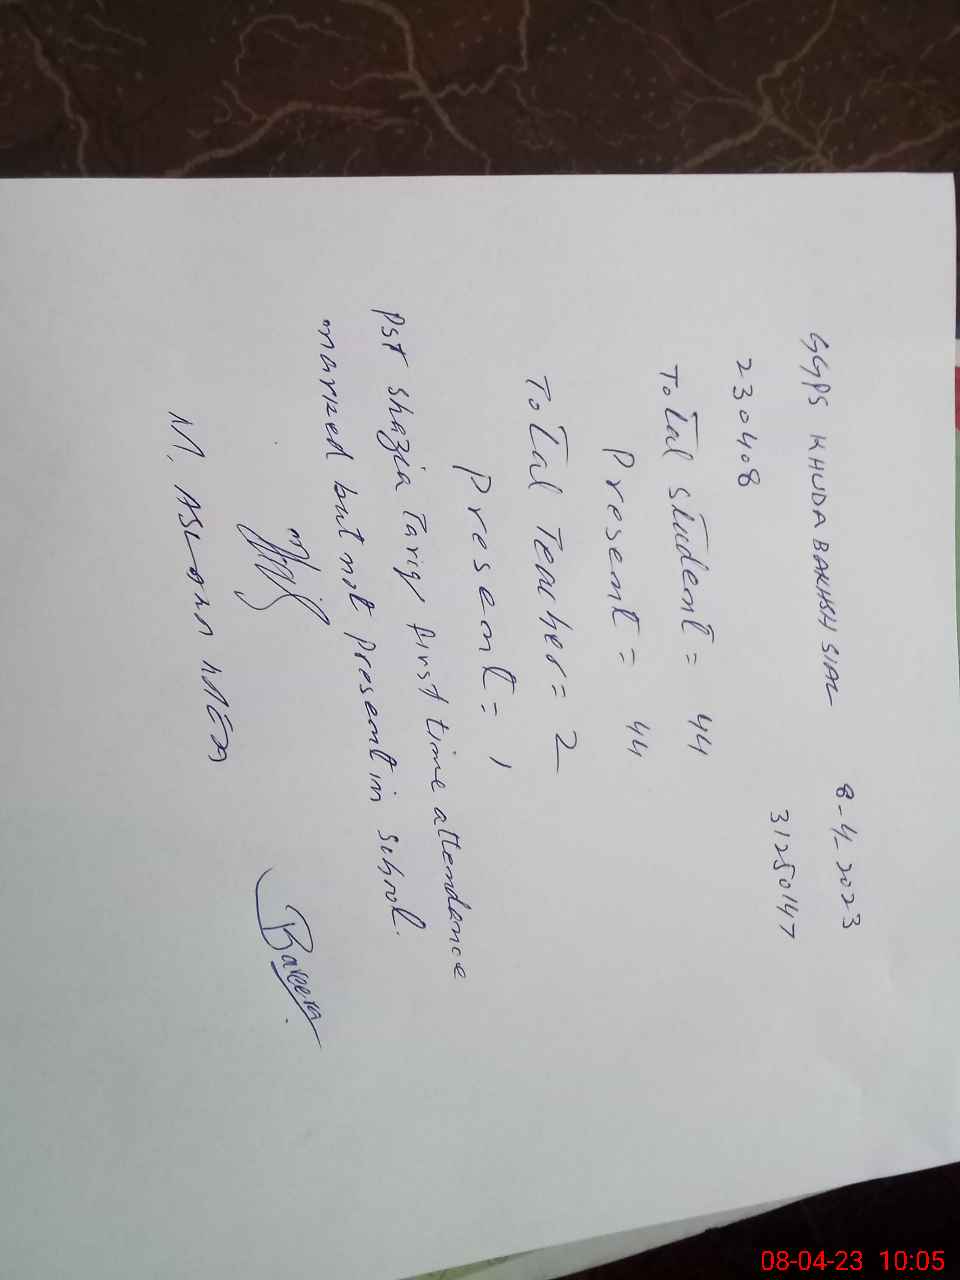 GGPS KHUDA BAKHSH SIAL 8-4-2023
230408 31250147
Total student = 44
Present = 44
Total Teacher = 2
Present = 1
Pst Shazia Tariq first time attendance
marked but not present in school.
M. Aslam MEA
08-04-23 10:05